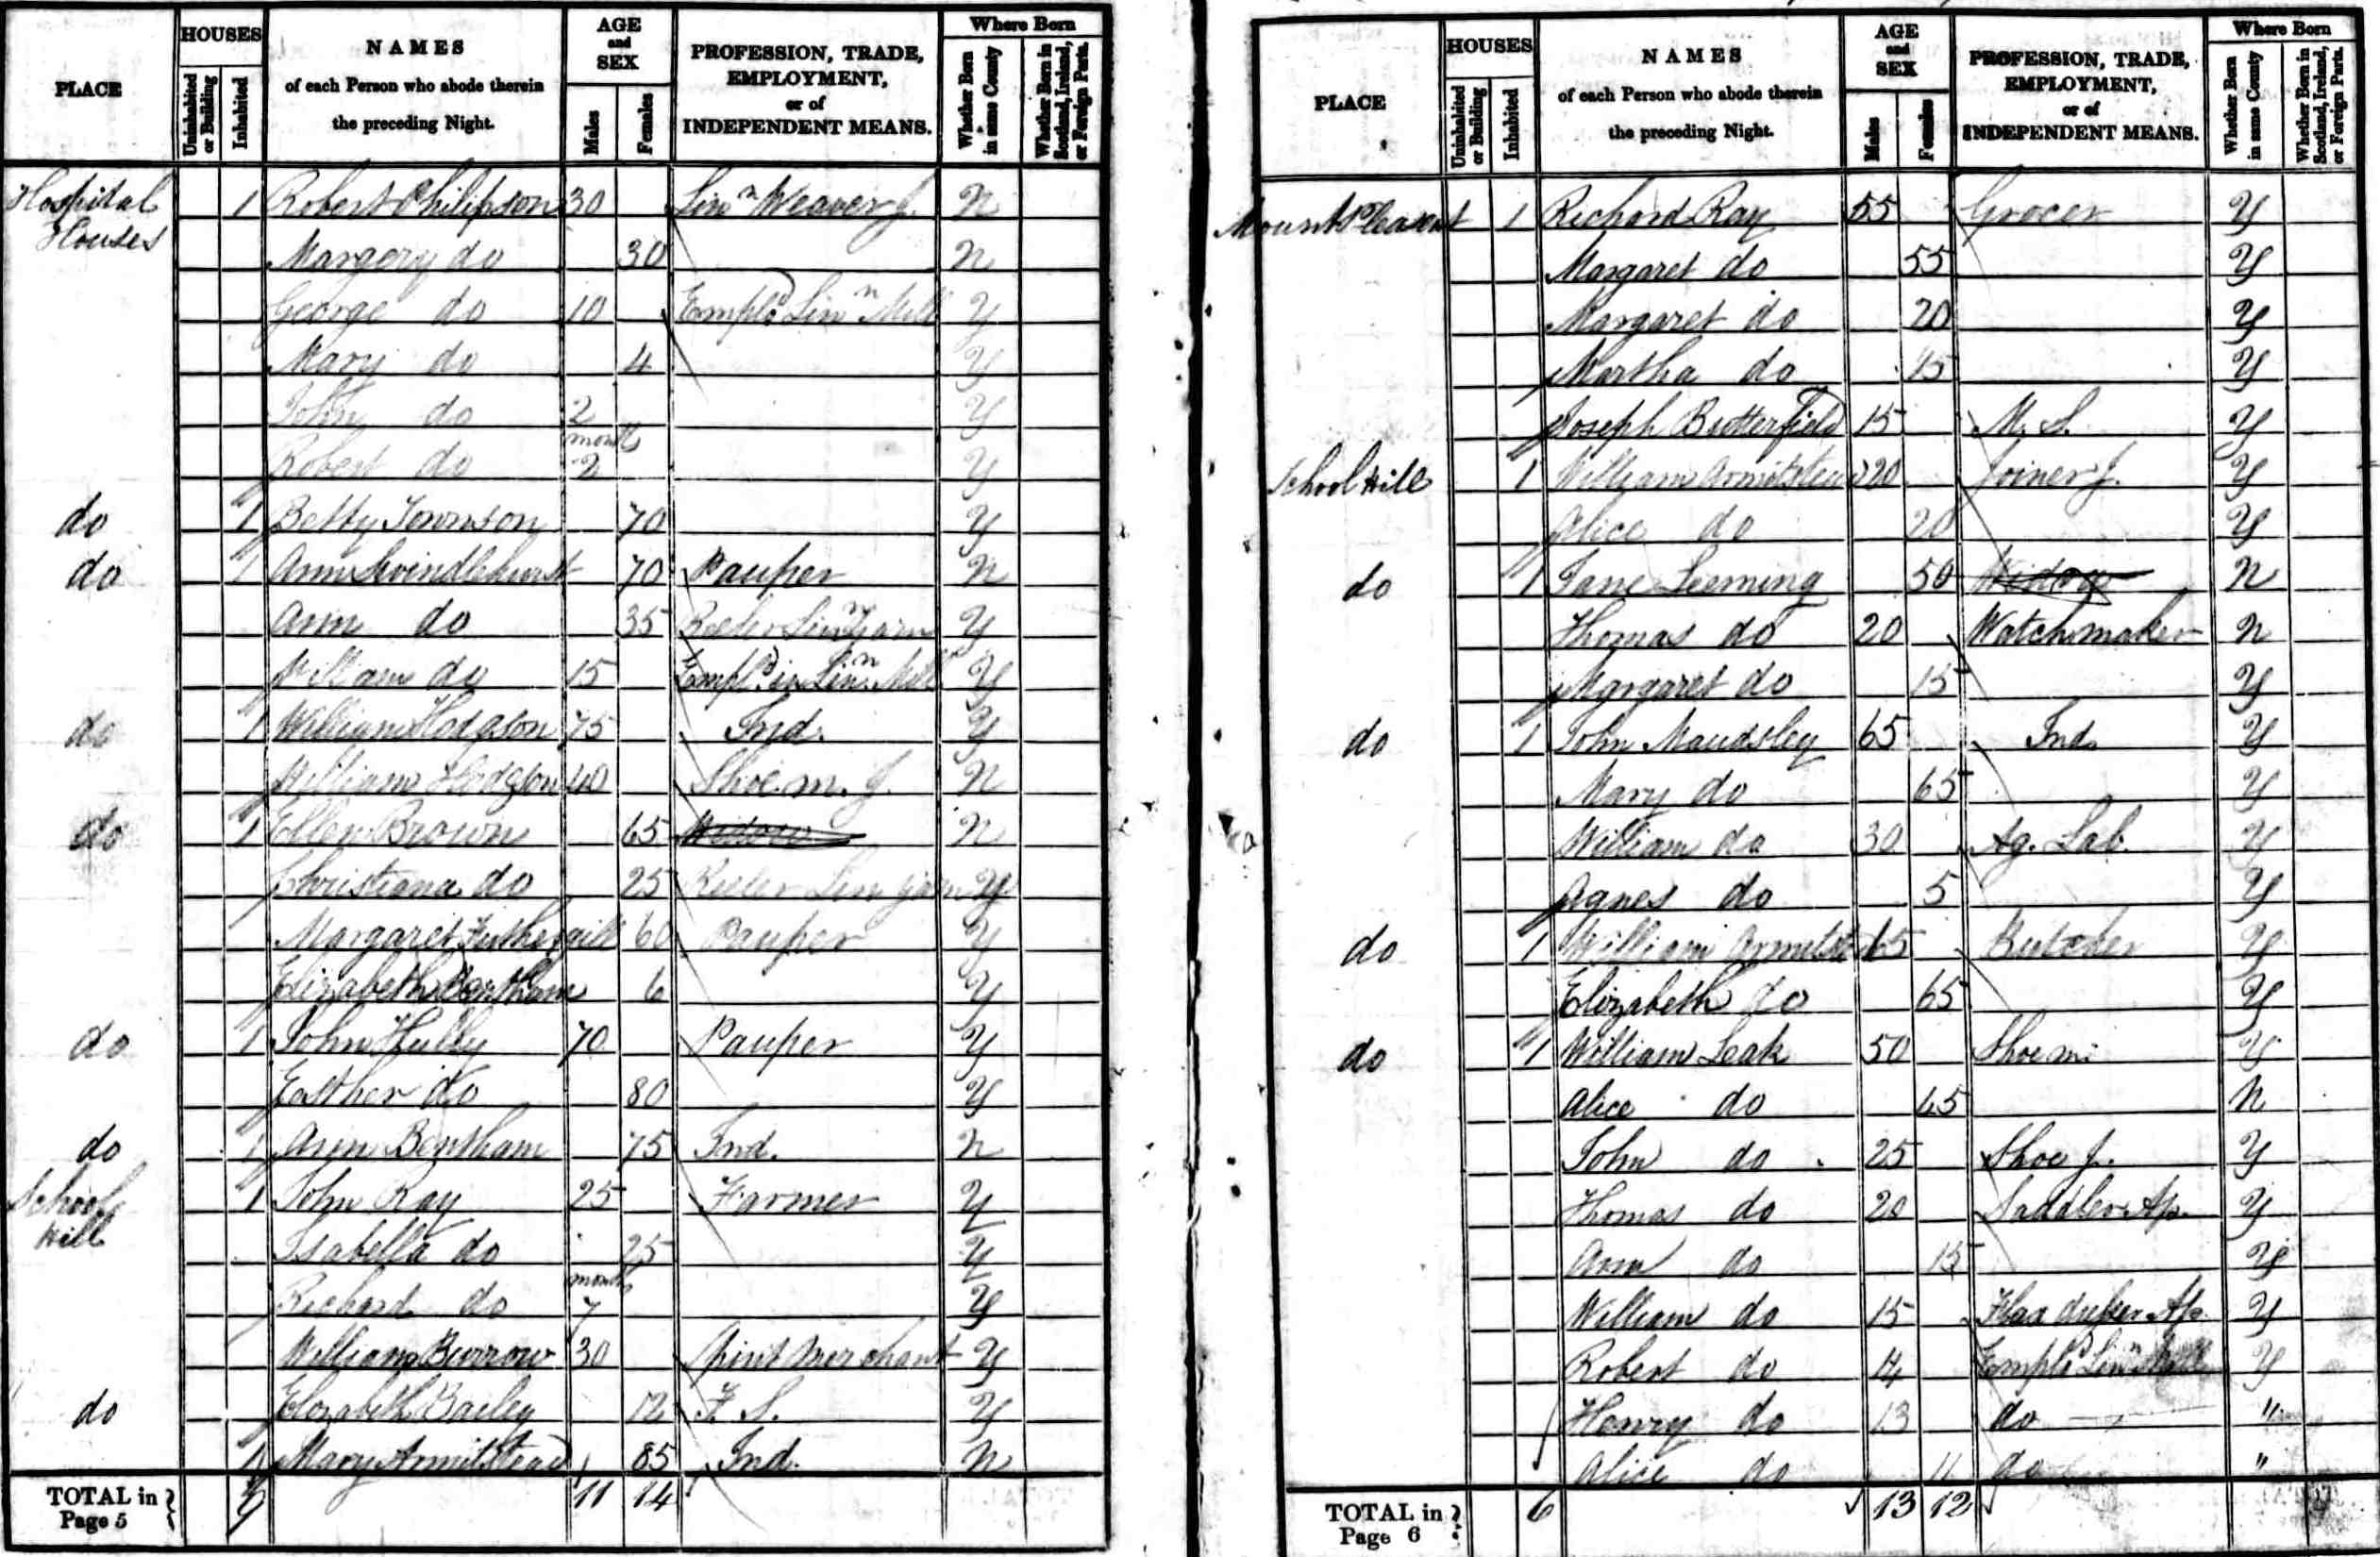 PLACE HOUSES Uninhabited or Building Inhabited NAMES of each Person who abode therein the preceding Night. AGE and SEX Males Females PROFESSION, TRADE, EMPLOYMENT, or of INDEPENDENT MEANS. Where Born Whether Born in same County Whether Born in Scotland, Ireland, or Foreign Parts.
Hospital Houses 1 Robert Philipson 30 Linn Weaver J. N
Margery do 30 N
George do 10 Empld Linn Mill Y
Mary do 4 Y
John do 2 Y
Robert do 2 months Y
do 1 Betty Townson 70 Y
do 1 Ann Swindlehurst 70 Pauper N
Ann do 35 Reeler Linn Yarn Y
William do 15 Empld in Linn Mill Y
do 1 William Hodgson 75 Ind. Y
William Hodgson 40 Shoe m. J. N
do 1 Ellen Brown 65 Widow N
Christiana do 25 Reeler Lin yarn Y
Margaret Fothergill 60 Pauper Y
Elizabeth Bentham 6 Y
do 1 John Hully 70 Pauper Y
Esther do 80 Y
do 1 Ann Bentham 75 Ind. N
School Hill 1 John Ray 25 Farmer Y
Isabella do 25 Y
Richard do 7 months Y
William Burrow 30 Spirit Merchant Y
do Elizabeth Bailey 12 F. S. Y
1 Mary Armitstead 85 Ind. N
TOTAL in Page 5 9 11 14
PLACE HOUSES Uninhabited or Building Inhabited NAMES of each Person who abode therein the preceding Night. AGE and SEX Males Females PROFESSION, TRADE, EMPLOYMENT, or of INDEPENDENT MEANS. Where Born Whether Born in same County Whether Born in Scotland, Ireland, or Foreign Parts.
Mount Pleasant 1 Richard Ray 55 Grocer Y
Margaret do 55 Y
Margaret do 20 Y
Martha do 15 Y
Joseph Butterfield 15 M. S. Y
School Hill 1 William Armitstead 20 Joiner J. Y
Alice do 20 Y
do 1 Jane Leeming 50 Widow N
Thomas do 20 Watchmaker N
Margaret do 15 Y
do 1 John Maudsley 65 Ind Y
Mary do 65 Y
William do 30 Ag. Lab. Y
Agnes do 5 Y
do 1 William Armitst 65 Butcher Y
Elizabeth do 65 Y
do 1 William Leak 50 Shoe m. Y
Alice do 45 N
John do 25 Shoe J. Y
Thomas do 20 Saddler Ap. Y
Ann do 15 Y
William do 15 Flax dresser Ap. Y
Robert do 14 Empld Linn Mill Y
Henry do 13 do "
Alice do 11 do "
TOTAL in Page 6 6 13 12